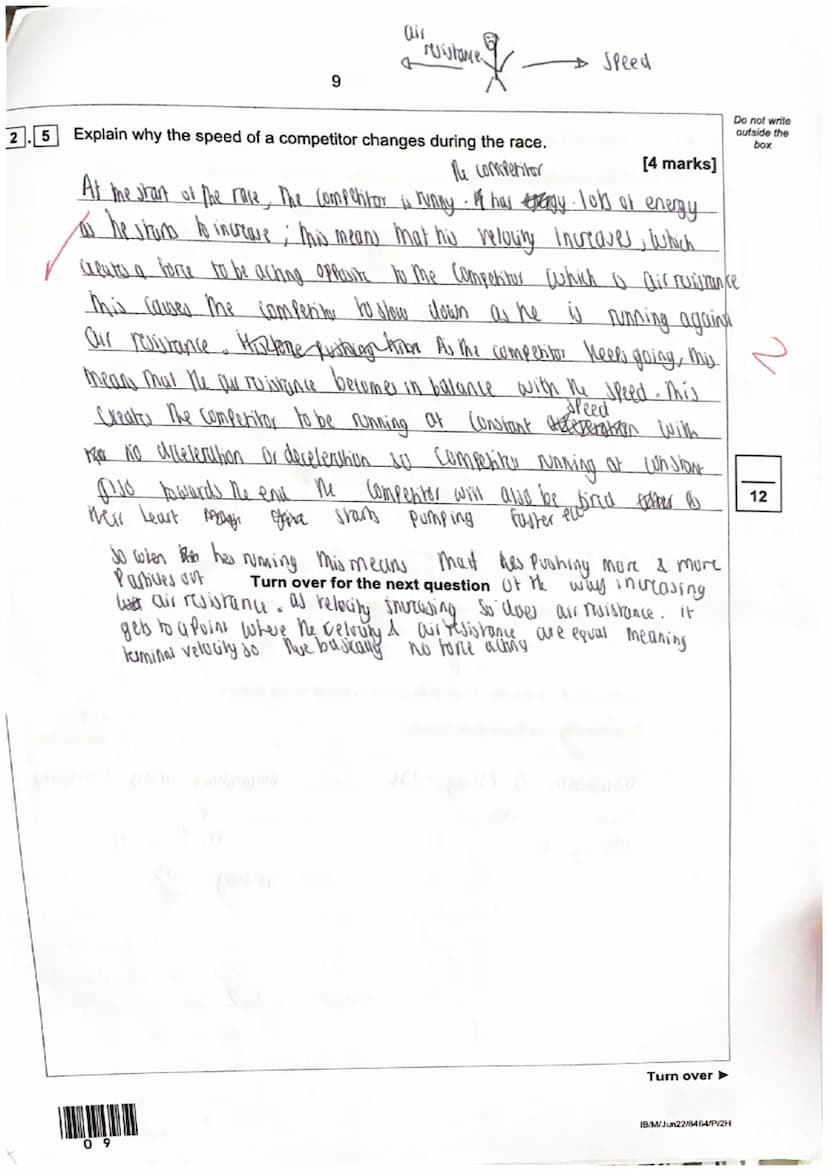 air
resistance
speed
9
Do not write
outside the
box
2 . 5 Explain why the speed of a competitor changes during the race.
[4 marks]
The competitor
At the start of the race, The competitor is runny . has lots of energy
as he starts to increase ; this means that his velocity increases, which
creates a force to be acting opposite to the competitor which is air resistance
This causes the competitor to slow down as he is running against
air resistance . As the competitor keeps going, this
means that the air resistance becomes in balance with the speed. This
speed
creates the competitor to be running at constant with
no acceleration or deceleration so competitor running at constant
also towards the end the competitor will also be tired as
their heart starts pumping faster
2
12
so when has running this means that hes pushing more & more
Particles out of the way increasing
Turn over for the next question
air resistance. as velocity increasing so does air resistance. it
gets to a point where the velocity & air resistance are equal meaning
terminal velocity so basically no force acting
Turn over ►
IB/M/Jun22/8464/P/2H
0 9